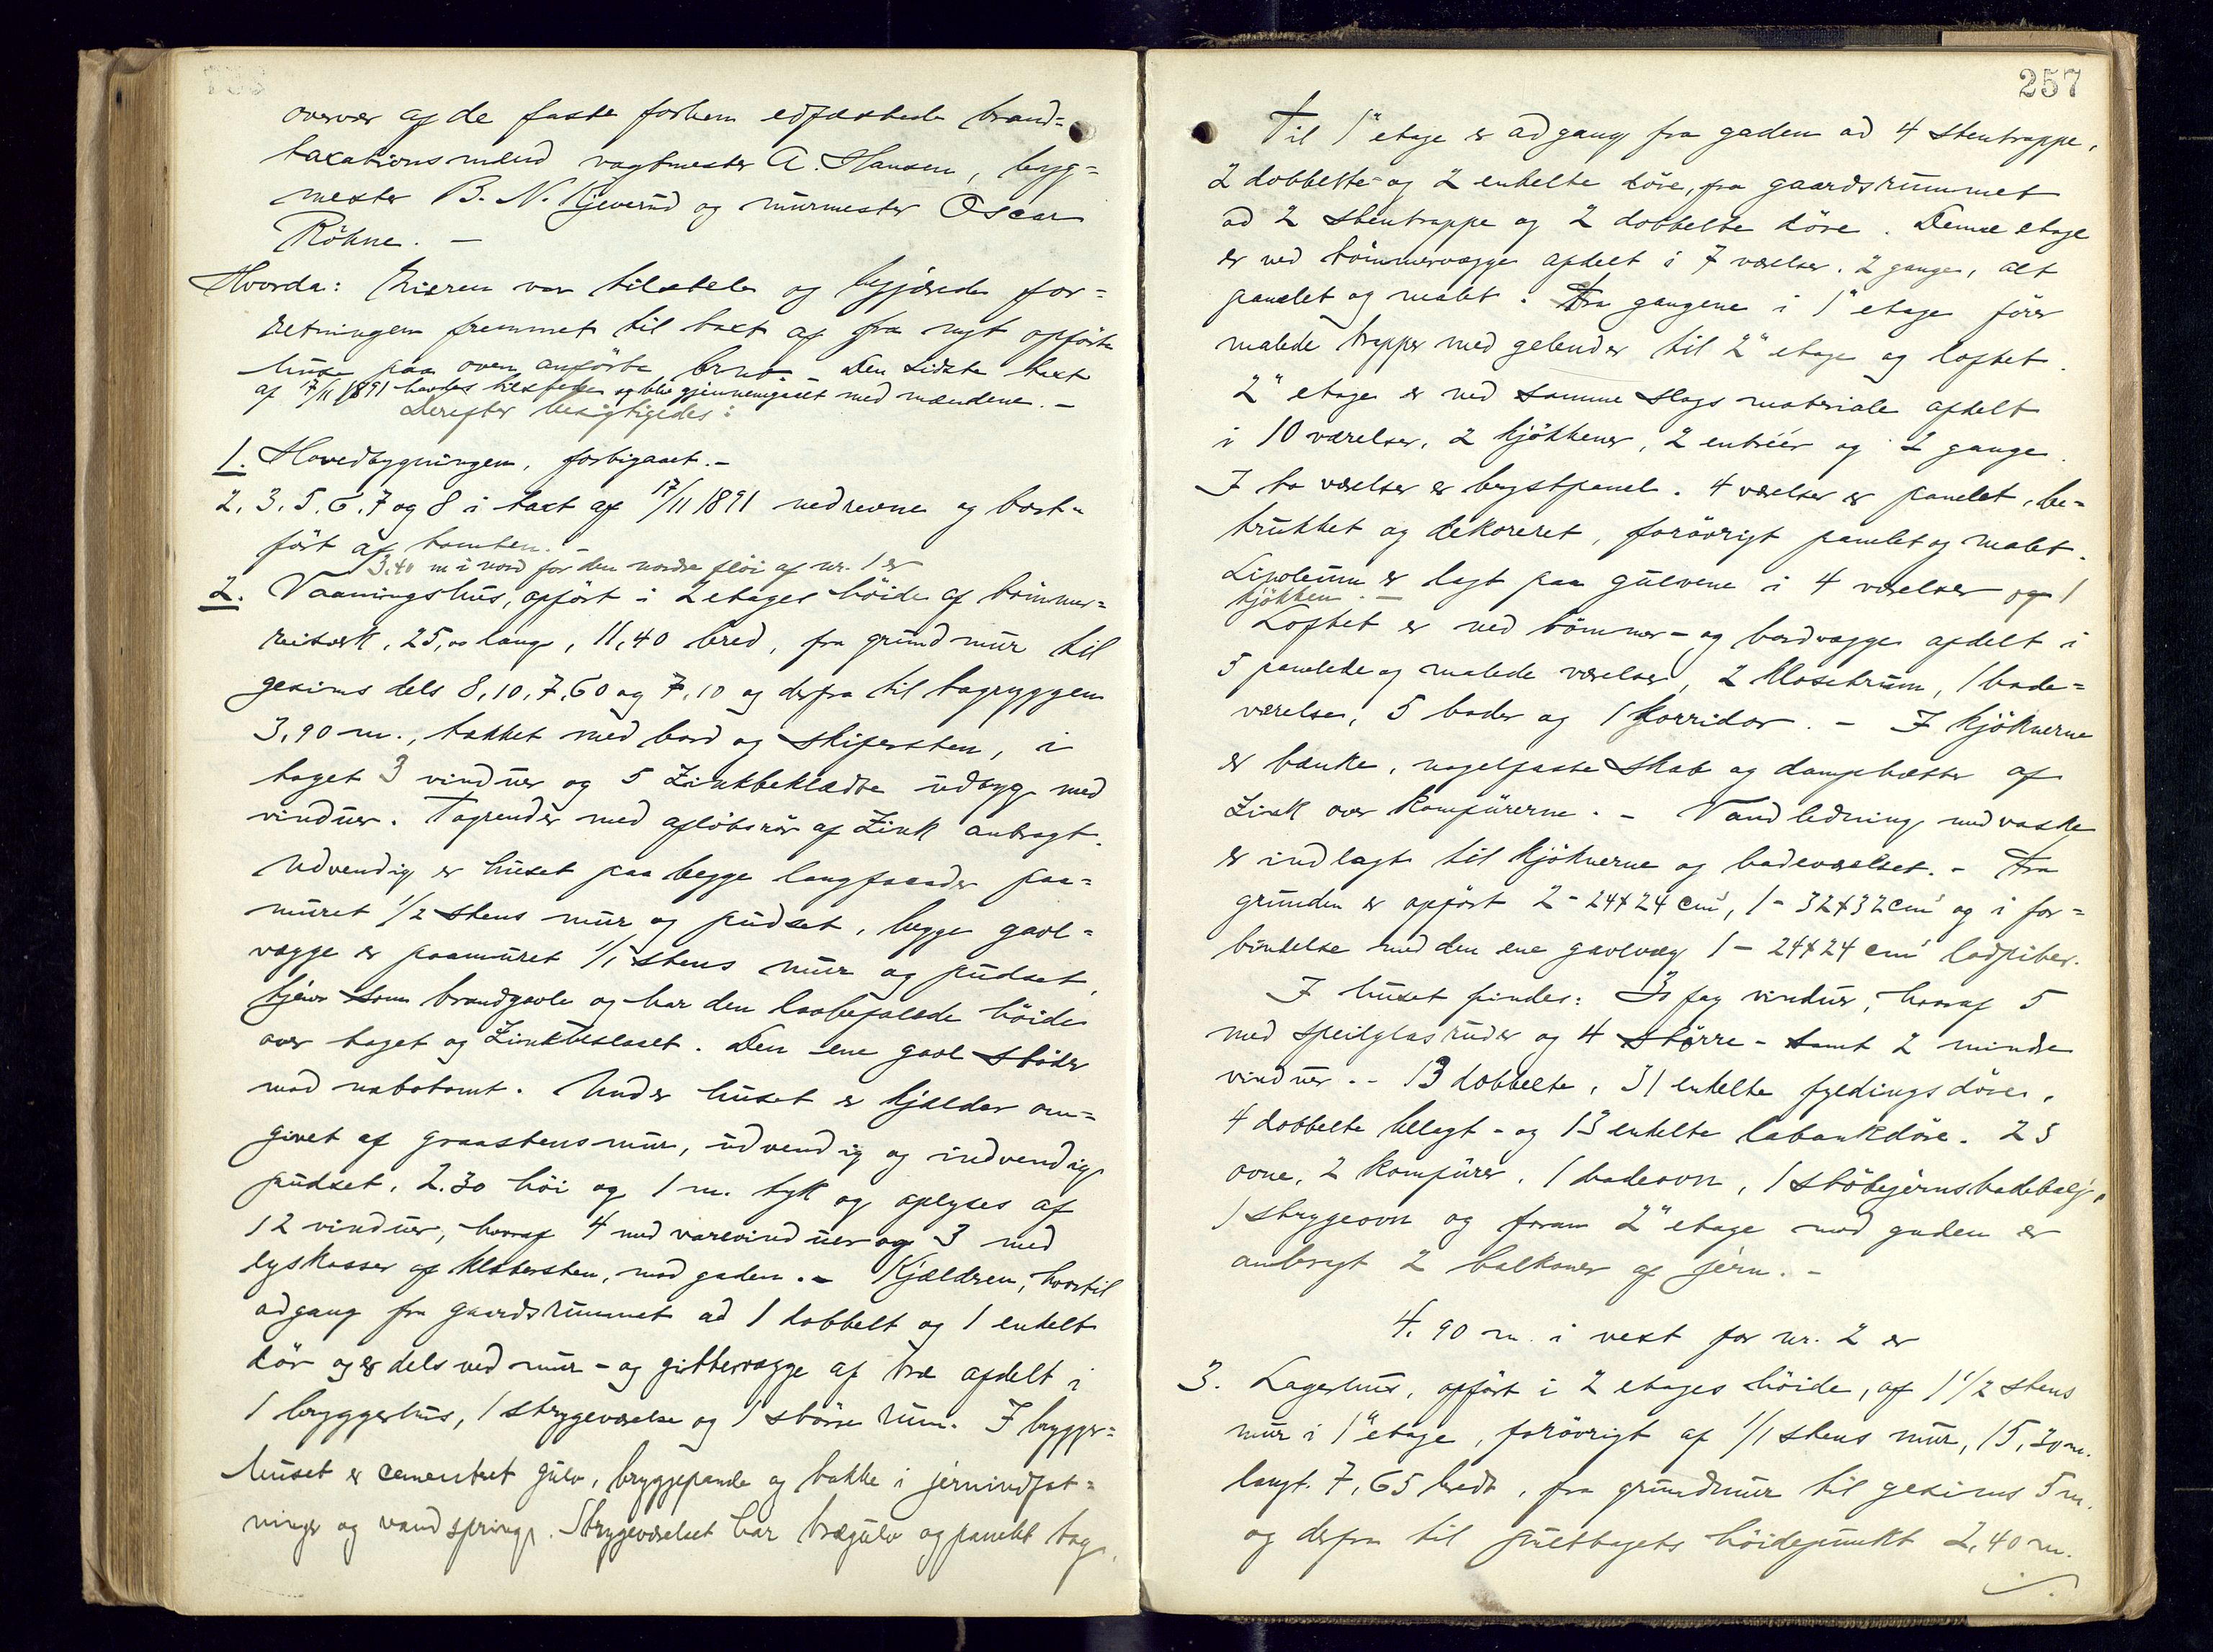 overvær af de faste forhen edfæstede brand=
taxationsmænd vagtmester A. Hansen, byg=
mester B. N. Kjeverud og murmester Oscar
Röhne. —
Hvorda: Eieren var tilstede og begjærede for=
retningen fremmet til taxt af fra nyt opförte
huse paa oven anförte brnt. Den sidste taxt
af 17/11 1891 havdes tilstede og blev gjennemgaaet med mændene. —
Derefter besigtigedes:
1. Hovedbygningen, forbigaaet. —
2, 3, 5, 6, 7 og 8 i taxt af 17/11 1891 nedrevne og bort=
fört af tomten. —
3,40 m i nord for den nordre flöi af nr. 1 er
2. Vaaningshus, opfört i 2 etages höide af tömmer=
reisverk, 25,00 lang, 11,40 bred, fra grundmur til
gesims dels 8,10, 7,60 og 7,10 og derfra til tagryggen
3,90 m., tækket med bord og skifersten, i
taget 3 vinduer og 5 Zinkbeklædte udbyg med
vinduer. Tagrender med aflöbsrör af Zink anbragt.
Udvendig er huset paa begge langfacader paa=
muret 1/2 stens mur og pudset, begge gavl=
vægge er paamuret 1/1 stens mur og pudset,
tjener som brandgavle og har den lovbefalede höide
over taget og Zinkbeslaaet. Den ene gavl stöder
mod nabotomt. Under huset er kjælder om=
givet af graastensmur, udvendig og indvendig
pudset, 2.30 höi og 1 m. tyk og oplyses af
12 vinduer, hvoraf 4 med varevinduer og 3 med
lyskasser af klebersten, mod gaden. — Kjælderen, hvortil
adgang fra gaardsrummet ad 1 dobbelt og 1 enkelt
dör og er dels ved mur- og gittervægge af træ afdelt i
1 bryggerhus, 1 strygeværelse og 1 större rum. I brygger=
huset er cementeret gulv, bryggepande og bakke i jernindfat=
ninger og vandspring. Strygeværelset har trægulv og panelet tag.
257
Til 1" etage er adgang fra gaden ad 4 stentrappe,
2 dobbelte og 2 enkelte döre, fra gaardsrummet
ad 2 stentrappe og 2 dobbelte döre. Denne etage
er ved tömmervægge afdelt i 7 værelser, 2 gange, alt
panelet og malet. Fra gangene i 1" etage förer
malede trapper med gelender til 2" etage og loftet.
2" etage er ved samme slags materiale afdelt
i 10 værelser, 2 kjökkener, 2 entréer og 2 gange.
I to værelser er brystpanel. 4 værelser er panelet, be=
trukket og dekoreret, forövrigt panelet og malet.
Linoleum er lagt paa gulvene i 4 værelser og 1
kjökken. —
Loftet er ved tömmer- og bordvægge afdelt i
5 panelede og malede værelser, 2 klosetrum, 1 bade=
værelse, 5 boder og 1 korridor. — I kjöknerne
er bænke, nagelfaste skab og damphætter af
Zink over komfürerne. — Vandledning med vaske
er indlagt til kjöknerne og badeværelset. — Fra
grunden er opfört 2 - 24x24 cm', 1 - 32x32 cm' og i for=
bindelse med den ene gavlvæg 1 - 24x24 cm' lodpiber.
I huset findes: 30 fag vinduer, hvoraf 5
med speilglasruder og 4 större - samt 2 mindre
vinduer. - 13 dobbelte, 31 enkelte fyldingsdöre,
4 dobbelte belagt- og 13 enkelte labankdöre. 25
ovne, 2 komfürer, 1 badeovn, 1 stöbejernsbadebalje,
1 strygeovn og foran 2" etage mod gaden er
anbragt 2 balkoner af jern. —
4,90 m. i vest for nr. 2 er
3. Lagerhus, opfört i 2 etages höide, af 1 1/2 stens
mur i 1" etage, forövrigt af 1/1 stens mur, 15,30 m.
langt, 7,65 bredt, fra grundmur til gesims 5 m.
og derfra til pulttagets höidepunkt 2,40 m.